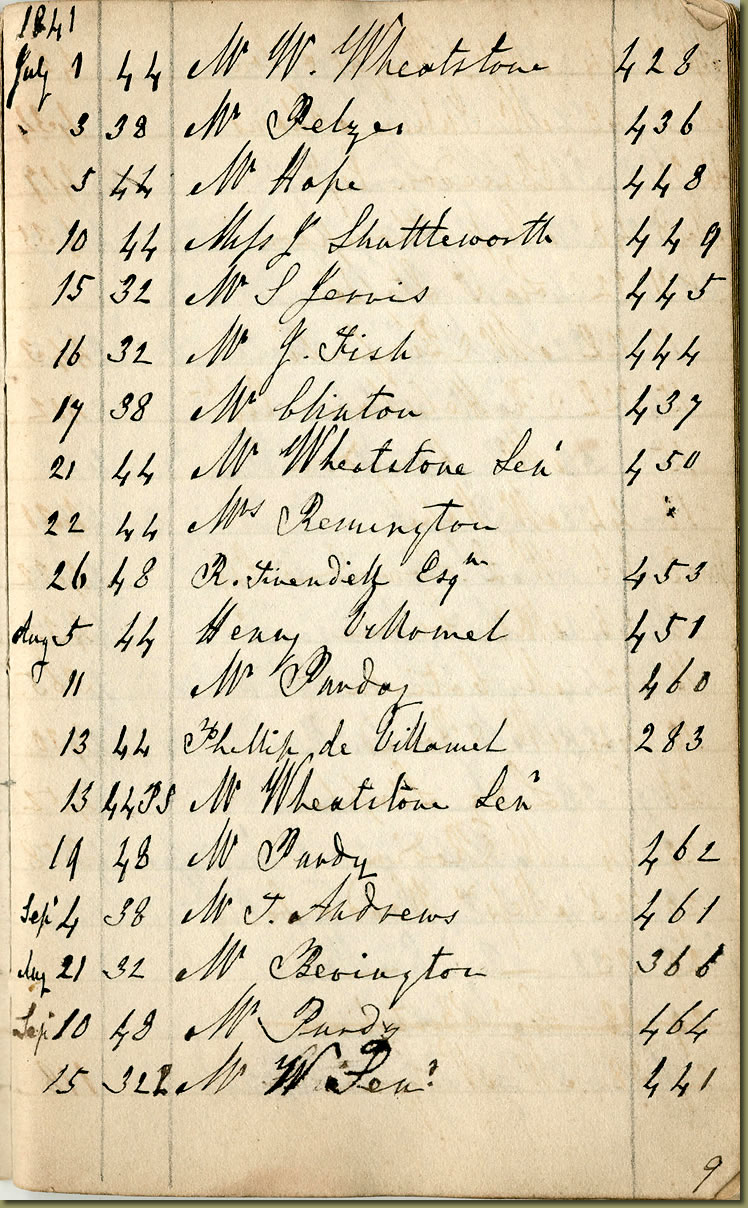 1841
July 1 44 Mr W. Wheatstone 428
3 38 Mr Pelzer 436
5 44 Mr Hope 448
10 44 Miss J Shuttleworth 449
15 32 Mr S Jervis 445
16 32 Mr J. Fish 444
17 38 Mr Clinton 437
21 44 Mr Wheatstone Senr 450
22 44 Mrs Remington
26 48 R. Esqre 453
Aug 5 44 Henry Villamel 451
11 Mr Purday 460
13 44 Phillip de Villamel 283
13 44 PS Mr Wheatstone Senr
19 48 Mr Purdy 462
Sepr 4 38 Mr T. Andrews 461
Aug 21 32 Mr Bevington 366
Sepr 10 48 Mr Purdy 464
15 32 Mr W Senr 441
9